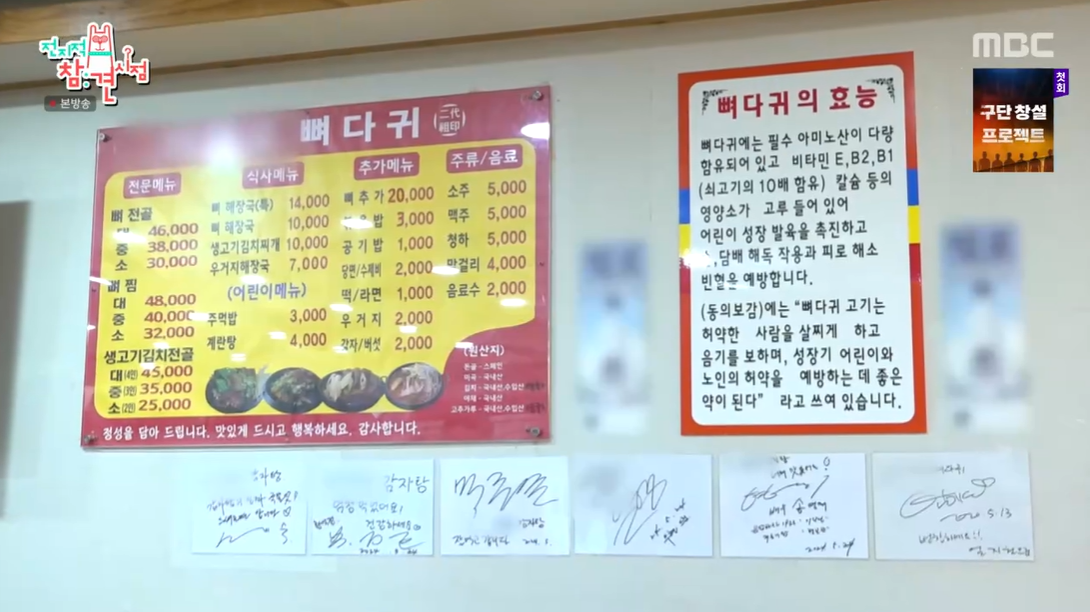 전지적
참견
시점
본방송
MBC
첫회
구단 창설
프로젝트
뼈다귀
전문메뉴
뼈 전골
대 46,000
중 38,000
소 30,000
뼈 찜
대 48,000
중 40,000
소 32,000
생고기김치전골
대(4인) 45,000
중(3인) 35,000
소(2인) 25,000
식사메뉴
뼈 해장국(특) 14,000
뼈 해장국 10,000
생고기김치찌개 10,000
우거지해장국 7,000
(어린이메뉴)
주먹밥 3,000
계란탕 4,000
추가메뉴
뼈추가 20,000
볶음밥 3,000
공기밥 1,000
당면/수제비 2,000
떡/라면 1,000
우거지 2,000
감자/버섯 2,000
주류/음료
소주 5,000
맥주 5,000
청하 5,000
막걸리 4,000
음료수 2,000
(원산지)
돈골 - 스페인
미곡 - 국내산
김치 - 국내산,수입산
야채 - 국내산
고추가루 - 국내산,수입산
정성을 담아 드립니다. 맛있게 드시고 행복하세요. 감사합니다.
뼈다귀의 효능
뼈다귀에는 필수 아미노산이 다량
함유되어 있고 비타민 E,B2,B1
(쇠고기의 10배 함유) 칼슘 등의
영양소가 고루 들어 있어
어린이 성장 발육을 촉진하고
,담배 해독 작용과 피로 해소
빈혈을 예방합니다.
(동의보감)에는 "뼈다귀 고기는
허약한 사람을 살찌게 하고
음기를 보하며, 성장기 어린이와
노인의 허약을 예방하는 데 좋은
약이 된다" 라고 쓰여 있습니다.
감자탕